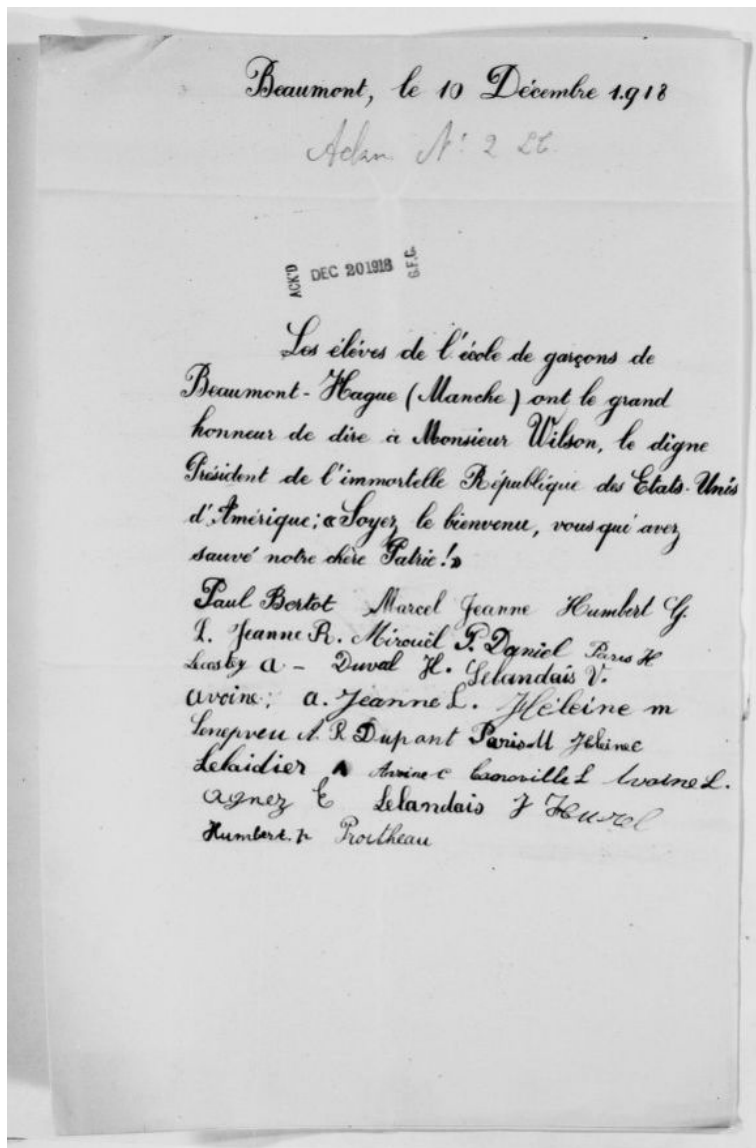 Beaumont, le 10 Décembre 1918
N: 2
ACK'D DEC 20 1918 G.F.C.
Les élèves de l'école de garçons de
Beaumont-Hague (Manche) ont le grand
honneur de dire à Monsieur Wilson, le digne
Président de l'immortelle République des Etats-Unis
d'Amérique: « Soyez le bienvenu, vous qui avez
sauvé notre chère Patrie! »
Paul Bertot Marcel Jeanne Humbert G.
L. Jeanne R. Mirouël P. Daniel Paris H
a - Duval H. Lelandais V.
avoine; a. Jeanne L. Héleine m
Senepveu A. R Dupont Paris M Héleine
Lelaidier A Avoine C Canoville L Avoine L.
Agnez E Lelandais J Hurel
Humbert. p